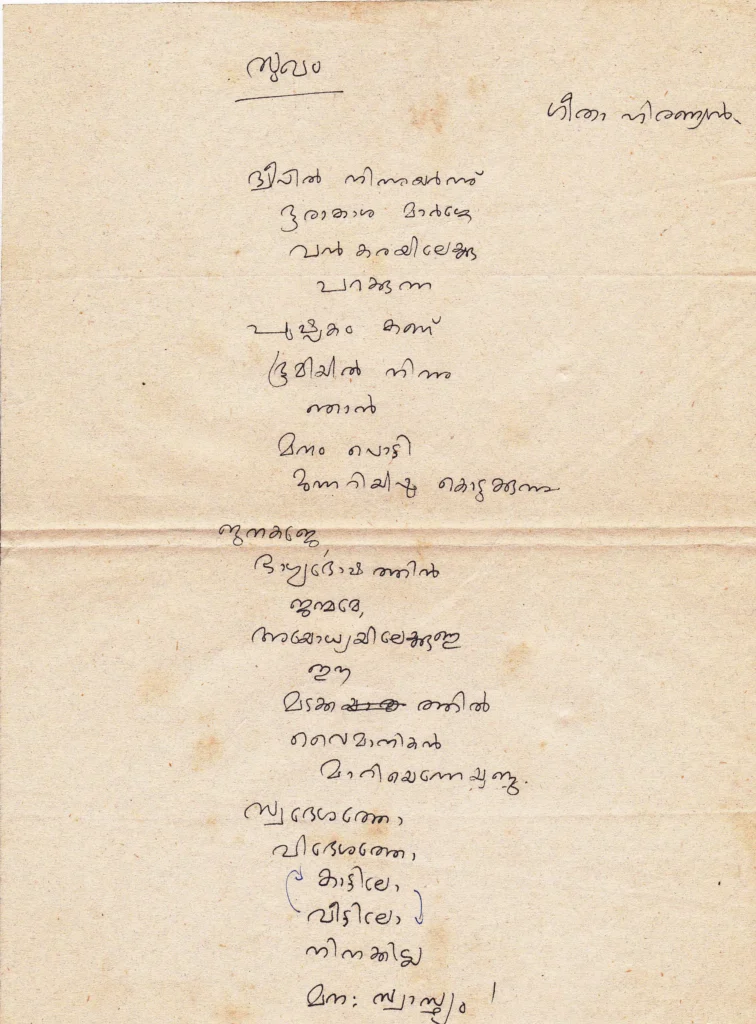 സുഖം
ഗീതാ ഹിരണ്യൻ.
ദ്വീപിൽ നിന്നുയർന്ന്
ദൂരാകാശ മാർഗ്ഗേ
വൻ കരയിലേക്കു
പറക്കുന്ന
പുഷ്പകം കണ്ട്
ഭൂമിയിൽ നിന്നു
ഞാൻ
മനം പൊട്ടി
മുന്നറിയിപ്പു കൊടുക്കുന്നു
ജനകജേ,
ഭാഗ്യദോഷത്തിൻ
ജന്മമേ,
അയോധ്യയിലേക്കുള്ള
ഈ
മടക്കത്തിൽ
വൈമാനികൻ
മാറിയെന്നേയുള്ളു.
സ്വദേശത്തോ
വിദേശത്തോ
കാട്ടിലോ
വീട്ടിലോ
നിനക്കില്ല
മന: സ്വാസ്ഥ്യം!